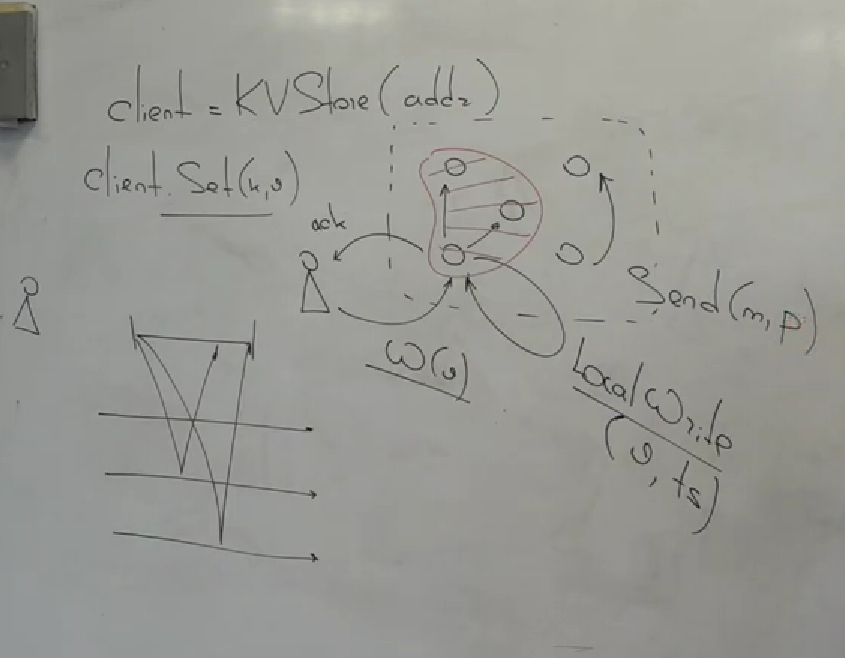 client = KVStore(addr)
client.Set(k,v)
ack
Send(m,p)
W(v)
LocalWrite
(v, ts)